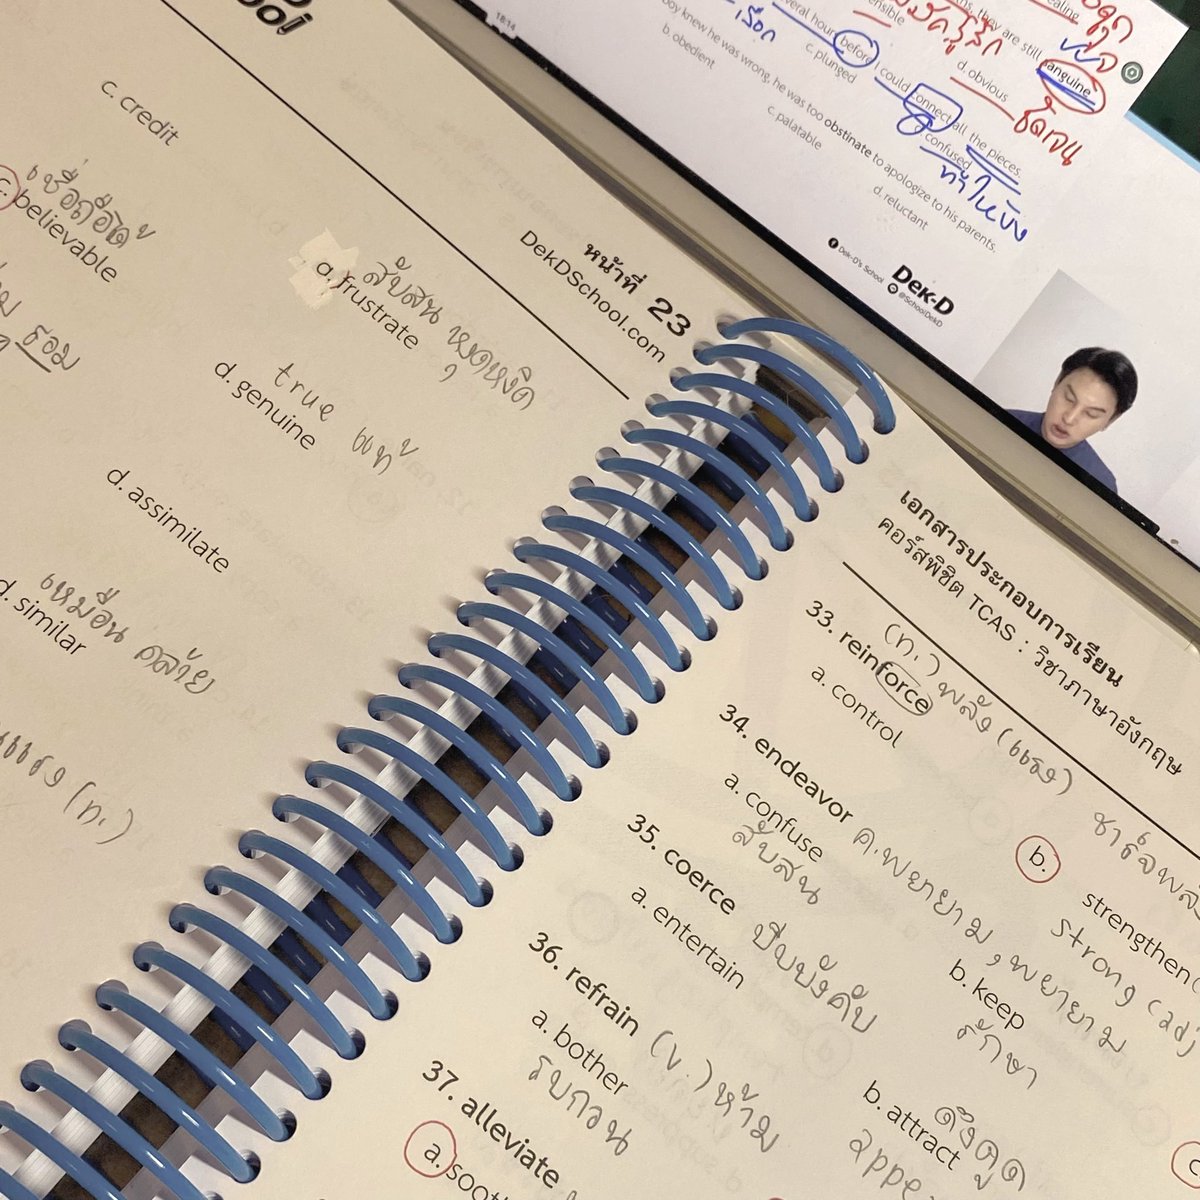 c. credit
เชื่อถือได้
c. believable
ธอม
สับสน หงุดหงิด
a. frustrate
true แท้
d. genuine
d. assimilate
เหมือน คล้าย
d. similar
แรง (n.)
หน้าที่ 23
DekDSchool.com
18:14
they are still sanguine
d. obvious
ชัดเจน
several hours before I could connect all the pieces.
เลือก
c. plunged
confused
ทำให้งง
boy knew he was wrong, he was too obstinate to apologize to his parents.
b. obedient
c. palatable
d. reluctant
Dek-D's School
@SchoolDekD
DEK-D
เอกสารประกอบการเรียน
คอร์สพิชิต TCAS : วิชาภาษาอังกฤษ
(n.) พลัง (แรง)
33. reinforce
ชาร์จพลัง
a. control
b. strengthen
strong (adj
34. endeavor ค.พยายาม, พยายาม
a. confuse
b. keep
สับสน
รักษา
35. coerce บีบบังคับ
a. entertain
b. attract
ดึงดูด
appe
36. refrain (v.) ห้าม
a. bother
รบกวน
37. alleviate
a. soot